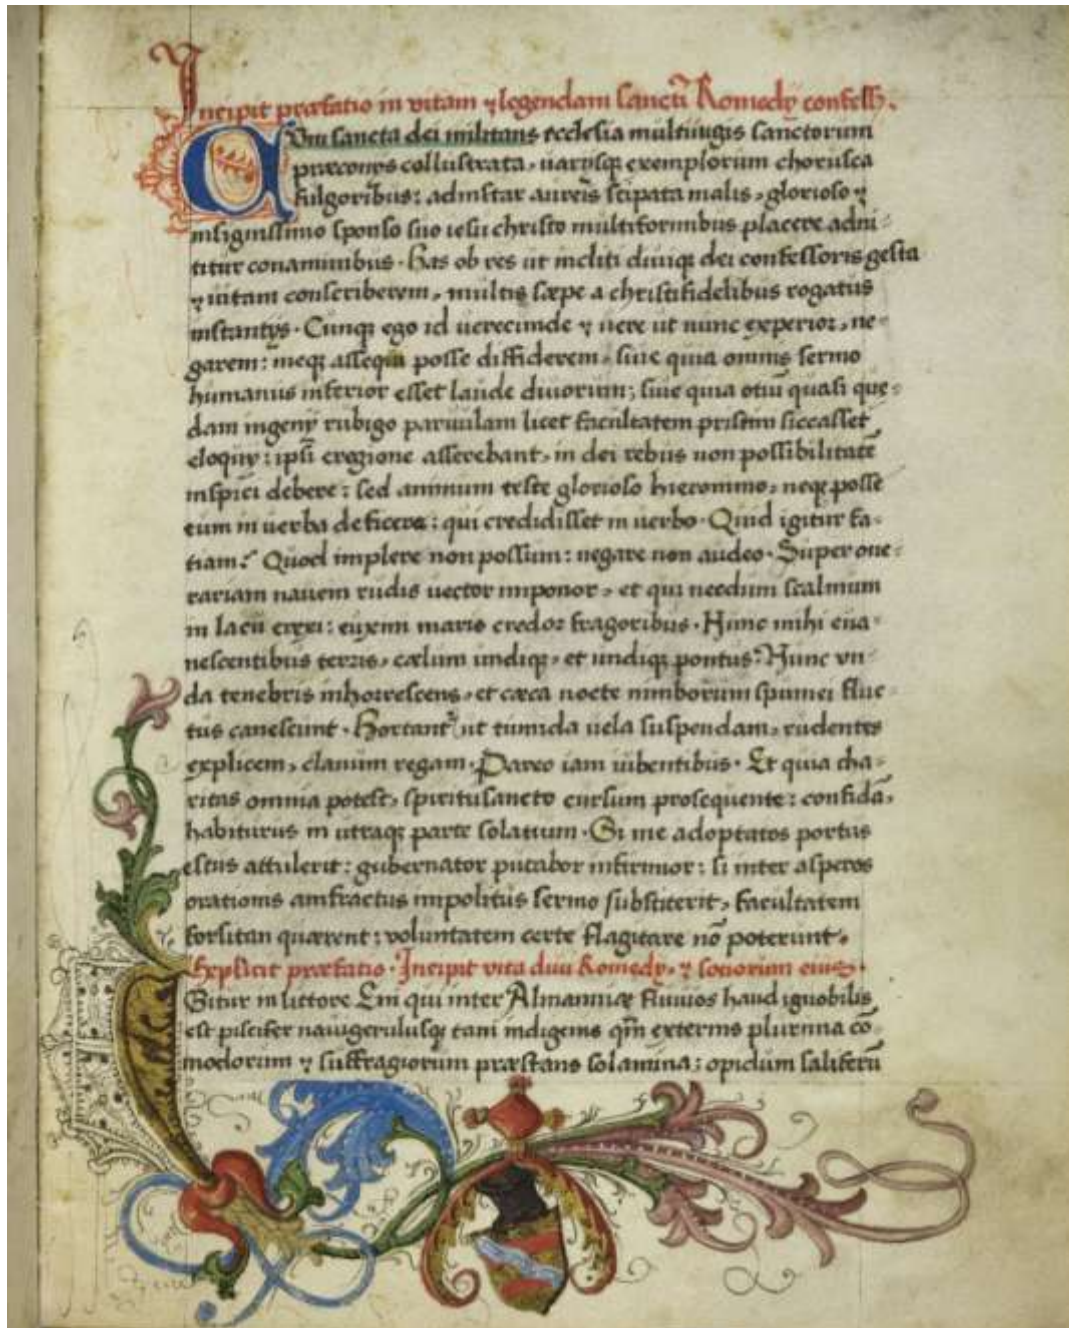 Incipit præfatio in vitam ⁊ legendam sancti Romedy confess.
Cum sancta dei militans ecclesia multiiugis sanctorum
præconys collustrata, uarysq; exemplorum chorusca
fulgoribus: adinstar aureis stipata malis, glorioso ⁊
insignissimo sponso suo iesu christo multiformibus placere adni-
titur conaminibus. Has ob res ut incliti diuiq; dei confessoris gesta
⁊ uitam conscriberem, multis sæpe a christifidelibus rogatus
instantys. Cunq; ego id uerecunde ⁊ uere ut nunc experior, ne-
garem: meq; assequi posse diffiderem, siue quia omnis sermo
humanus inferior esset laude diuorum; siue quia otiū quasi que-
dam ingeny rubigo paruulam licet facultatem pristini siccasset
eloquy: ipsi eregione asserebant, in dei rebus non possibilitatē
inspici debere: sed animum teste glorioso hieronimo, neq; posse
eum in uerba deficere: qui credidisset in uerbo. Quid igitur fa-
tiam? Quod implere non possum: negare non audeo. Super one-
rariam nauem rudis uector imponor, et qui necdum scalmum
in lacu erexi: euxini maris credor fragoribus. Nunc mihi eua-
nescentibus terris, cælum undiq;, et undiq; pontus: Nunc vn-
da tenebris inhorrescens, et cæca nocte nimborum spumei fluc-
tus canescunt. Hortant᷑ ut tumida uela suspendam, rudentes
explicem, clauum regam. Pareo iam iubentibus. Et quia cha-
ritas omnia potest, spiritusancto cursum prosequente: confidā,
habiturus in utraq; parte solatium. Si me adoptatos portus
estus attulerit: gubernator putabor infirmior: si inter asperos
orationis amfractus impolitus sermo substiterit, facultatem
forsitan quærent: voluntatem certe flagitare nō poterunt.
Explicit præfatio. Incipit vita diui Romedy, ⁊ sociorum eius.
Igitur in littore Eni qui inter Almanniæ fluuios haud ignobilis
est piscifer nauigerulusq; tam indigenis qm̄ externis plurima cō-
modorum ⁊ suffragiorum præstans solamina: opidum saliferū